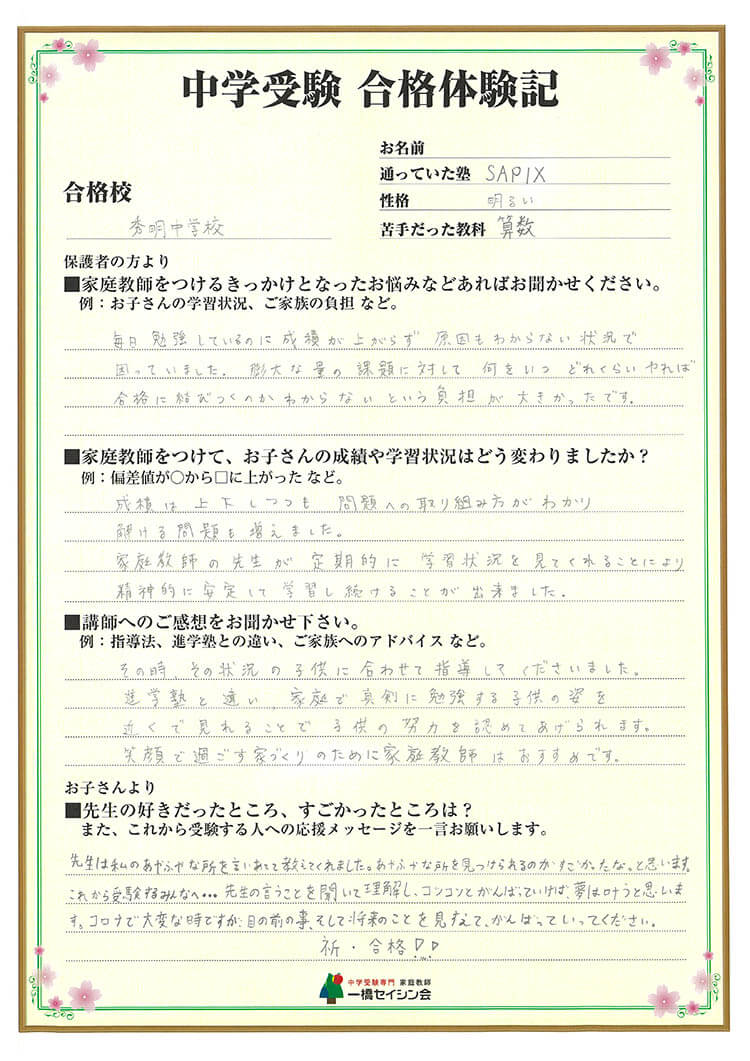 中学受験 合格体験記
お名前
通っていた塾 SAPIX
合格校
性格 明るい
秀明中学校
苦手だった教科 算数
保護者の方より
■家庭教師をつけるきっかけとなったお悩みなどあればお聞かせください。
例：お子さんの学習状況、ご家族の負担 など。
毎日勉強しているのに成績が上がらず 原因もわからない状況で
困っていました。膨大な量の課題に対して 何をいつ どれくらいやれば
合格に結びつくのかわからないという負担が大きかったです。
■家庭教師をつけて、お子さんの成績や学習状況はどう変わりましたか？
例：偏差値が○から□に上がった など。
成績は上下しつつも 問題への取り組み方がわかり
解ける問題も増えました。
家庭教師の先生が 定期的に 学習状況を見てくれることにより
精神的に安定して学習し続けることが出来ました。
■講師へのご感想をお聞かせ下さい。
例：指導法、進学塾との違い、ご家族へのアドバイス など。
その時、その状況の子供に合わせて指導してくださいました。
進学塾と違い、家庭で真剣に勉強する子供の姿を
近くで見れることで子供の努力を認めてあげられます。
笑顔で過ごす家づくりのために家庭教師はおすすめです。
お子さんより
■先生の好きだったところ、すごかったところは？
また、これから受験する人への応援メッセージを一言お願いします。
先生は私のあやふやな所を言いあてて教えてくれました。あやふやな所を見つけられるのがすごかったな。と思います。
これから受験するみんなへ… 先生の言うことを聞いて理解し、コンコンとがんばっていけば、夢は叶うと思いま
す。コロナで大変な時ですが、目の前の事、そして将来のことを見すえて、がんばっていってください。
祈・合格!!
中学受験専門 家庭教師
一橋セイシン会